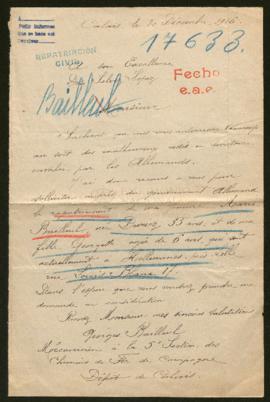 Calais, le 20 Décembre 1916
17633.
REPATRIACIÓN
CIVIL
Fecho
e.a.e.
Bailleul
A Son Excellence
Monsieur
Sachant que vous vous intéressez
au sort des malheureux restés en territoires
envahis par les Allemands.
J'ai donc recours à vous pour
solliciter auprès du gouvernement Allemand
le rapatriement de ma femme Marie
Bailleul, née 33 ans et de ma
fille Georgette âgée de 6 ans, qui sont
actuellement à Hellemmes, près Lille
rue Louis Blanc 17.
Dans l'espoir que vous voudrez prendre ma
demande en considération
Recevez Monsieur mes sincères salutations
Georges Bailleul
Mécanicien à la 5e Section des
Chemins de Fer de Campagne
Dépôt de Calais